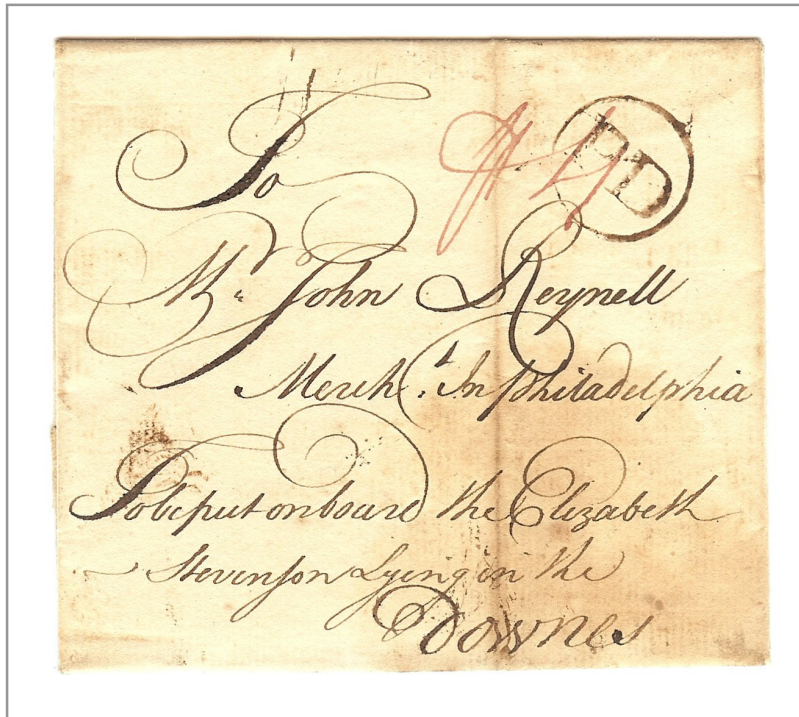 To
PD
Mr. John Reynell
Mercht. In Philadelphia
To be put on board the Elizabeth
Stevenson Lying in the
Downes